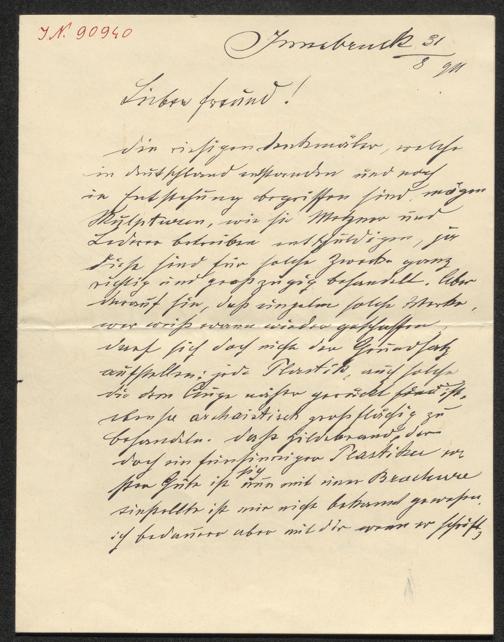 J.N. 90940
Innsbruck 31
8 911
Lieber Freund!
die riesigen Denkmäler, welche
in Deutschland entstanden und noch
in Entstehung begriffen sind, mögen
Skulpturen, wie sie Metzner und
Lederer betreiben entschuldigen, ja
diese sind für solche Zwecke ganz
richtig und großzügig behandelt. Aber
darauf hin, daß einzelne solche Werke,
wer weiß wann wieder geschaffen,
darf sich doch nicht der Grundsatz
aufstellen: jede Plastik, auch solche
die dem Auge näher gerückt ist,
ebenso archaistisch großflächig zu
behandeln. Daß Hildebrand, der
doch ein feinsinniger Plastiker er
ster Güte ist sich nun mit einer Brochure
einstellte ist mir nicht bekannt gewesen.
ich bedauere aber mit dir wenn er schrift,